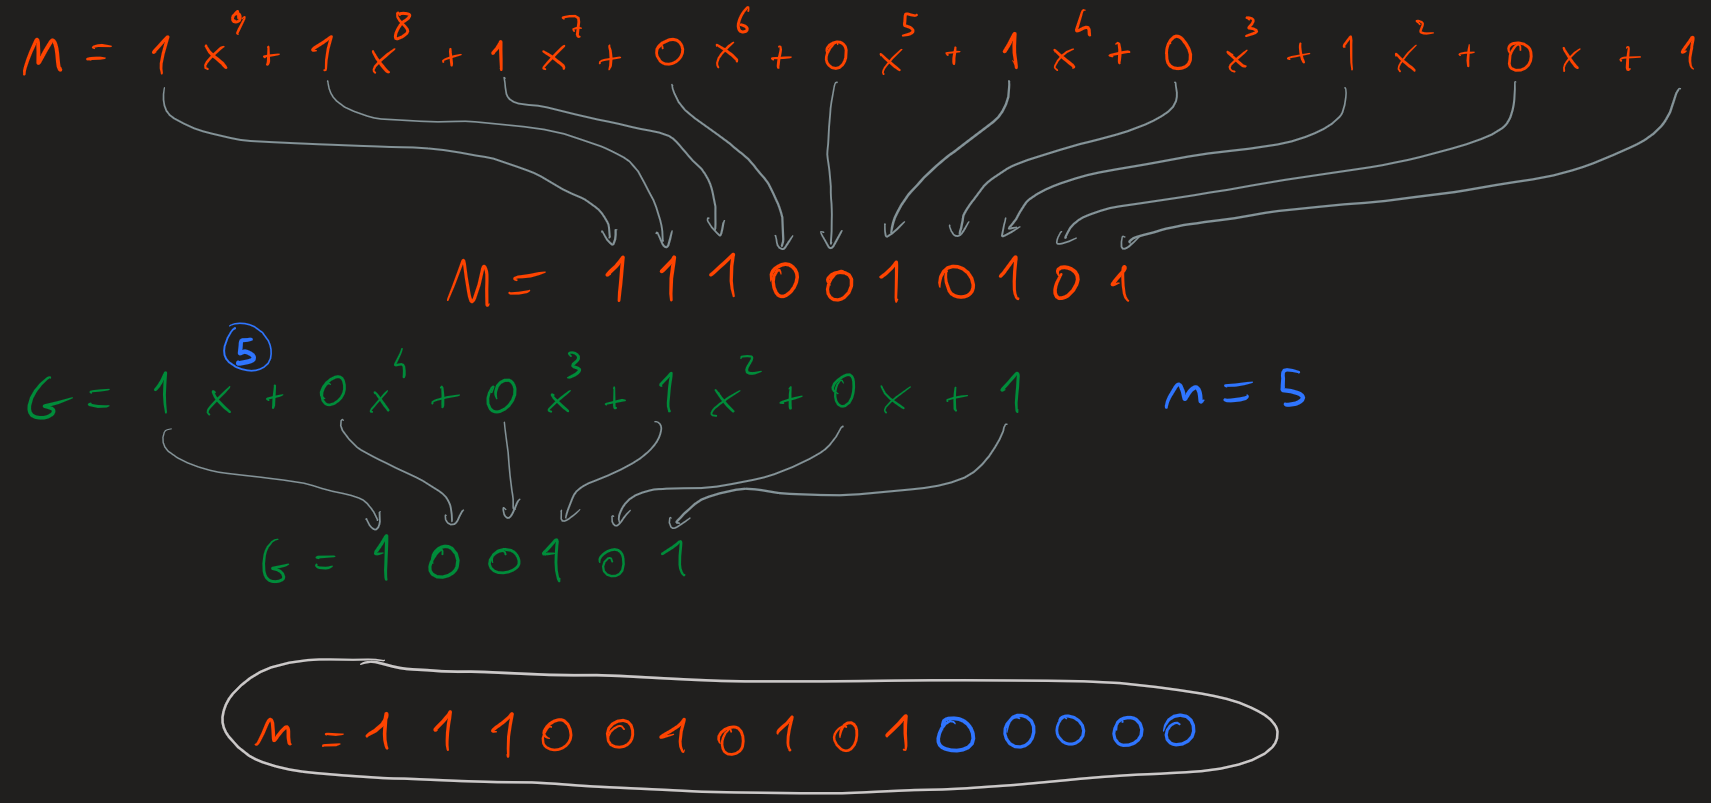 M = 1 x⁹ + 1 x⁸ + 1 x⁷ + 0 x⁶ + 0 x⁵ + 1 x⁴ + 0 x³ + 1 x² + 0 x + 1
M = 1 1 1 0 0 1 0 1 0 1
G = 1 x⁵ + 0 x⁴ + 0 x³ + 1 x² + 0 x + 1 m = 5
G = 1 0 0 1 0 1
M = 1 1 1 0 0 1 0 1 0 1 0 0 0 0 0